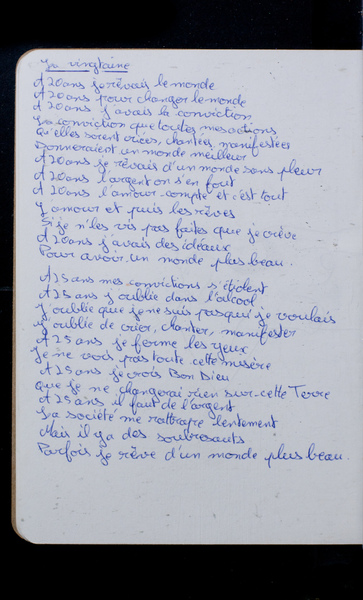 La vingtaine
A 20 ans je rêvais le monde
A 20 ans pour changer le monde
A 20 ans j'avais la conviction
La conviction que toutes mes actions
Qu'elles soient criées, chantées, manifestées
Donneraient un monde meilleur
A 20 ans je rêvais d'un monde sans pleur
A 20 ans l'argent on s'en fout
A 20 ans l'amour compte et c'est tout
L'amour et puis les rêves
Si je n'les vis pas faites que je crève
A 20 ans j'avais des idéaux
Pour avoir un monde plus beau.
A 25 ans mes convictions s'étiolent
A 25 ans j'oublie dans l'alcool
J'oublie que je ne suis pas qui je voulais
J'oublie de crier, chanter, manifester
A 25 ans je ferme les yeux
Je ne vois pas toute cette misère
A 25 ans je crois Bon Dieu
Que je ne changerai rien sur cette Terre
A 25 ans il faut de l'argent
La société me rattrape lentement
Mais il y a des soubresauts
Parfois je rêve d'un monde plus beau.